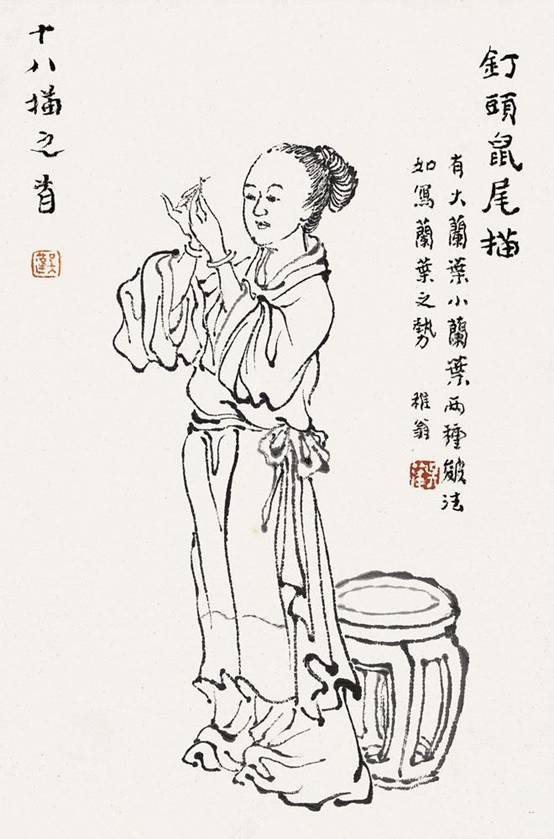 釘頭鼠尾描
有大蘭葉小蘭葉兩種皴法
如寫蘭葉之勢 稚翁
十八描之